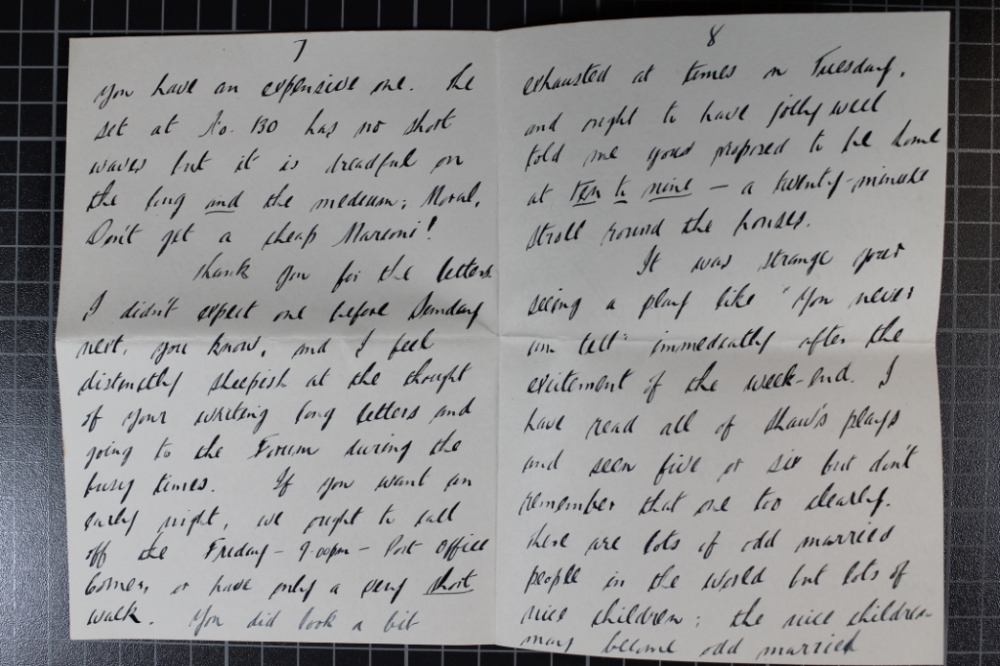 7
you have an expensive one. The
set at No. 130 has no short
waves but it is dreadful on
the long and the medium; Moral,
Don't get a cheap Marconi!
Thank you for the letters
I didn't expect one before Sunday
next, you know, and I feel
distinctly sheepish at the thought
of your writing long letters and
going to the Forum during the
busy times. If you want an
early night, we ought to call
off the Friday - 9.00pm - Post Office
Corner, or have only a very short
walk. You did look a bit
8
exhausted at times on Tuesday,
and ought to have jolly well
told me you'd proposed to be home
at ten to nine — a twenty-minute
stroll round the houses.
It was strange your
seeing a play like "You never
can tell" immediately after the
excitement of the week-end. I
have read all of Shaw's plays
and seen five or six but don't
remember that one too clearly.
There are lots of odd married
people in the world but lots of
nice children; the nice children
may become odd married